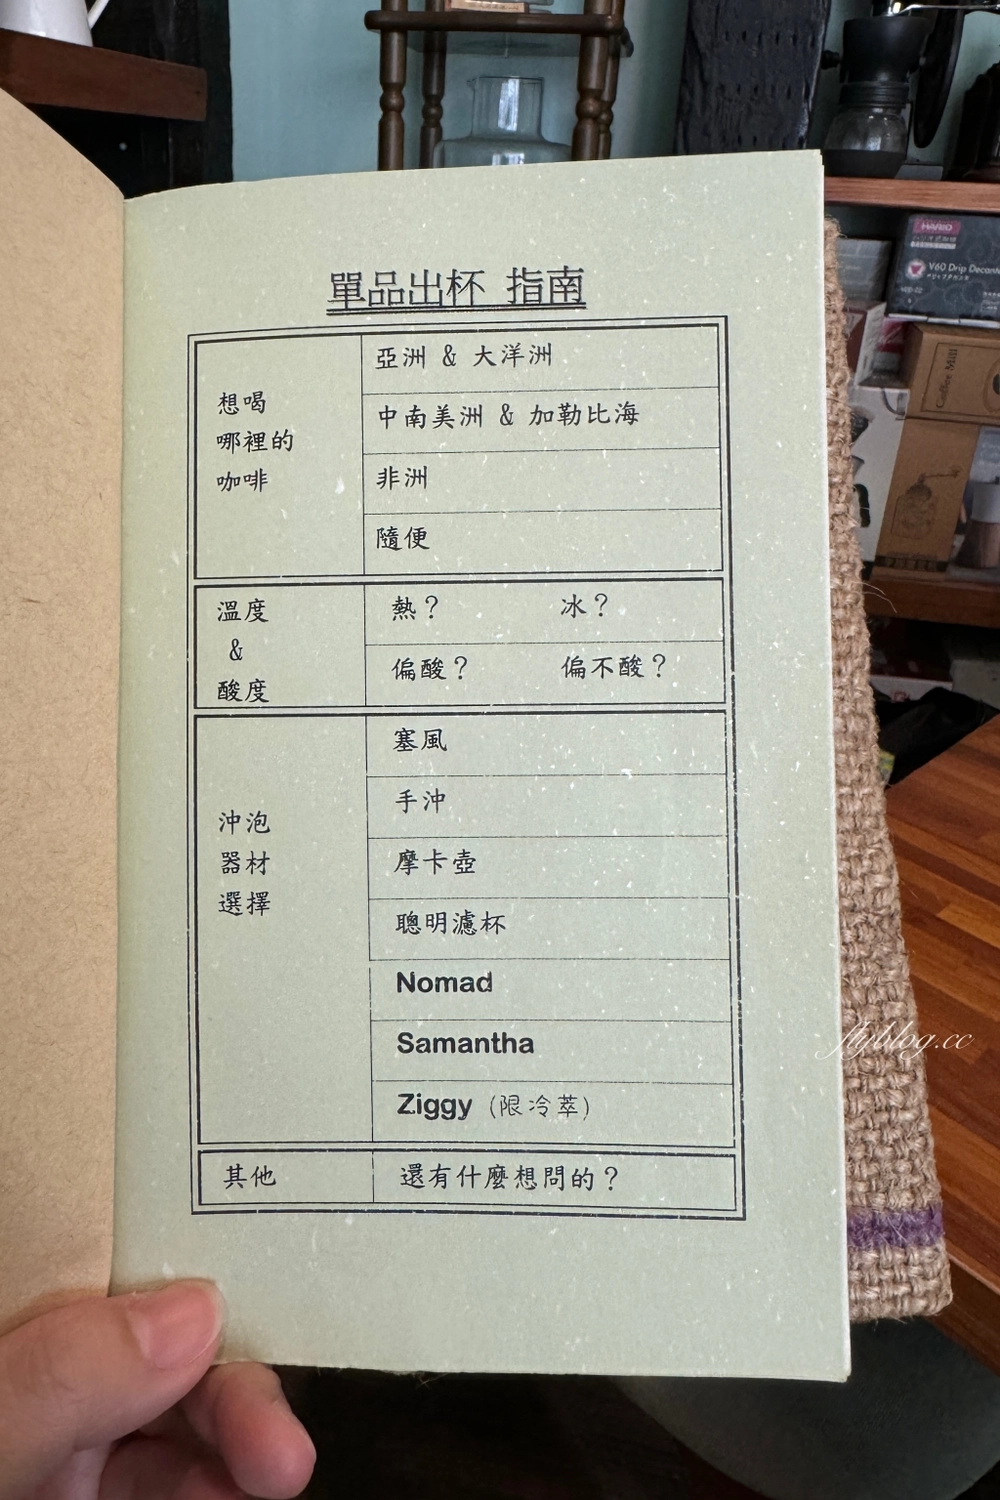 單品出杯 指南
想喝
哪裡的
咖啡
亞洲 & 大洋洲
中南美洲 & 加勒比海
非洲
隨便
溫度
&
酸度
熱？ 冰？
偏酸？ 偏不酸？
沖泡
器材
選擇
塞風
手沖
摩卡壺
聰明濾杯
Nomad
Samantha
Ziggy (限冷萃)
其他
還有什麼想問的？
HARIO
V60 Drip Decant
Coffee Mill
flyblog.cc